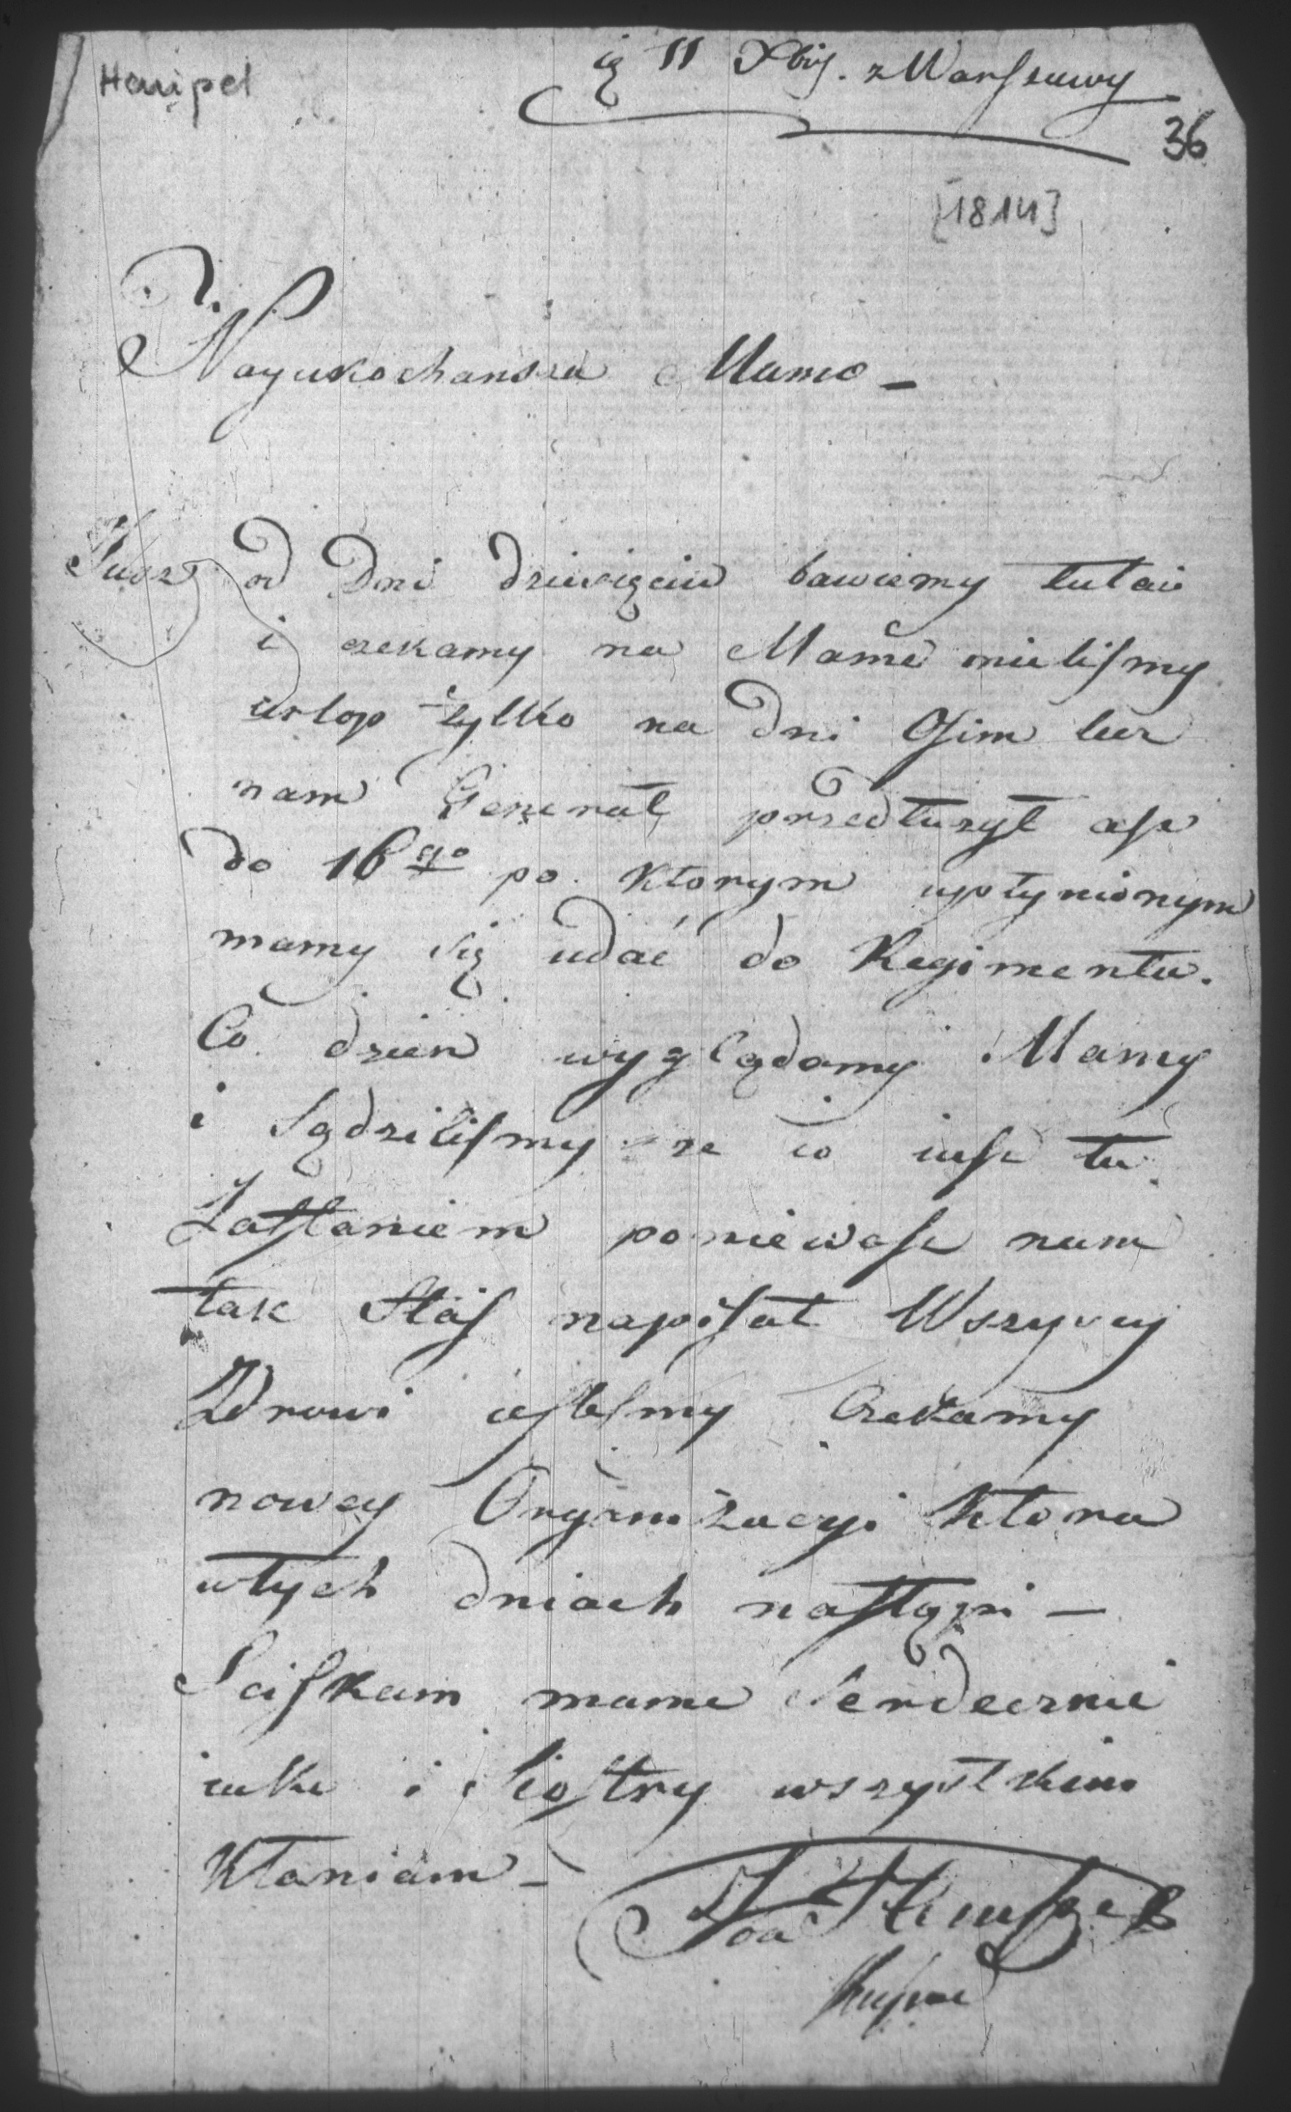 Haupel
11 Xbris. z Warszawy
36
[1814]
Nayukochansza Mamo –
Jusz od Dni dziewięciu bawiemy tutai
i czekamy na Mamę mieliſmy
urlop tylko na dni Oſim lecz
nam Generał przedłuzył asz
do 16go po ktorym upłynionym
mamy się udać do Regimentu.
Co dzien wyglądamy Mamy
i Sądziliſmy ze iusz tu
Zaſtaniem poniewasz nam
tak Staſ napiſał Wszyscy
Zdrowi ieſteſmy Czekamy
nowey Organizacyi Ktora
wtych dniach naſtąpi –
Sciſkam mame Serdecznie
i Sioſtry wszystkim
Kłaniam –